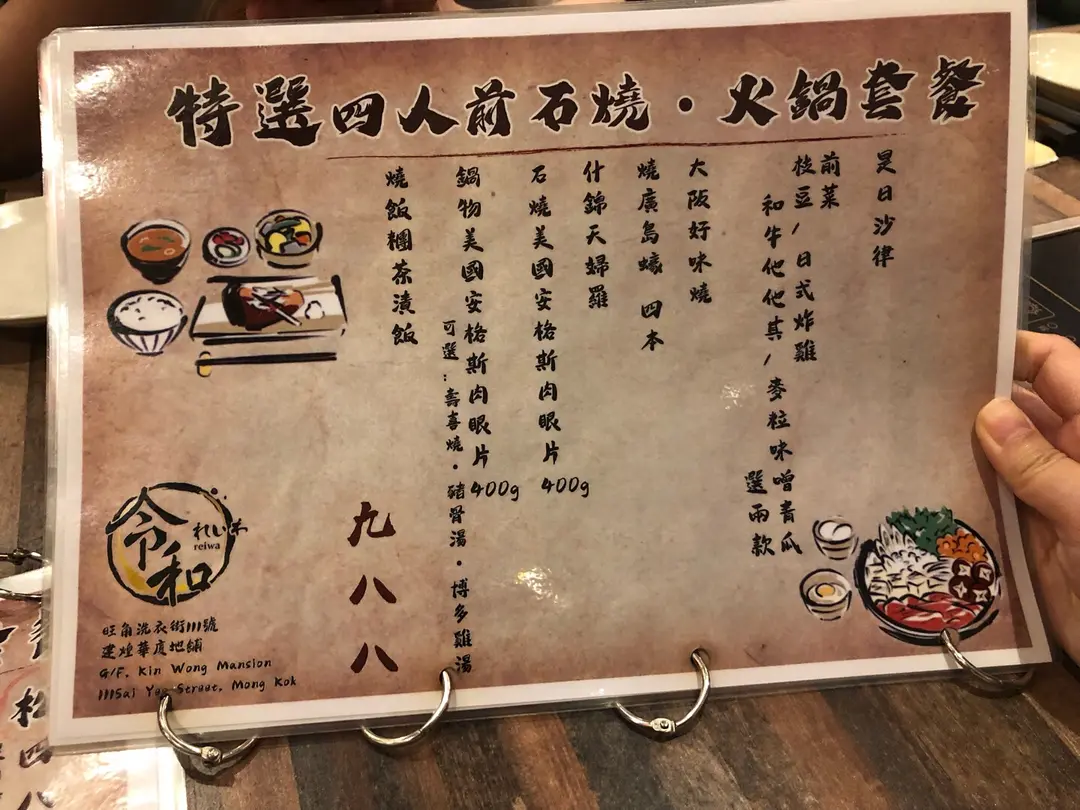 特選四人前石燒・火鍋套餐
昃日沙律
前菜
枝豆/日式炸雞
和牛他他其/麥粒味噌青瓜
選兩款
大阪好味燒
燒廣島蠔 四本
什錦天婦羅
石燒美國安格斯肉眼片 400g
鍋物美國安格斯肉眼片 400g
可選:壽喜燒・豬骨湯・博多雞湯
燒飯糰茶漬飯
九八八
令和
れいわ
reiwa
旺角洗衣街111號
建煌華廈地舖
G/F. Kin Wong Mansion
111Sai Yee Street, Mong Kok